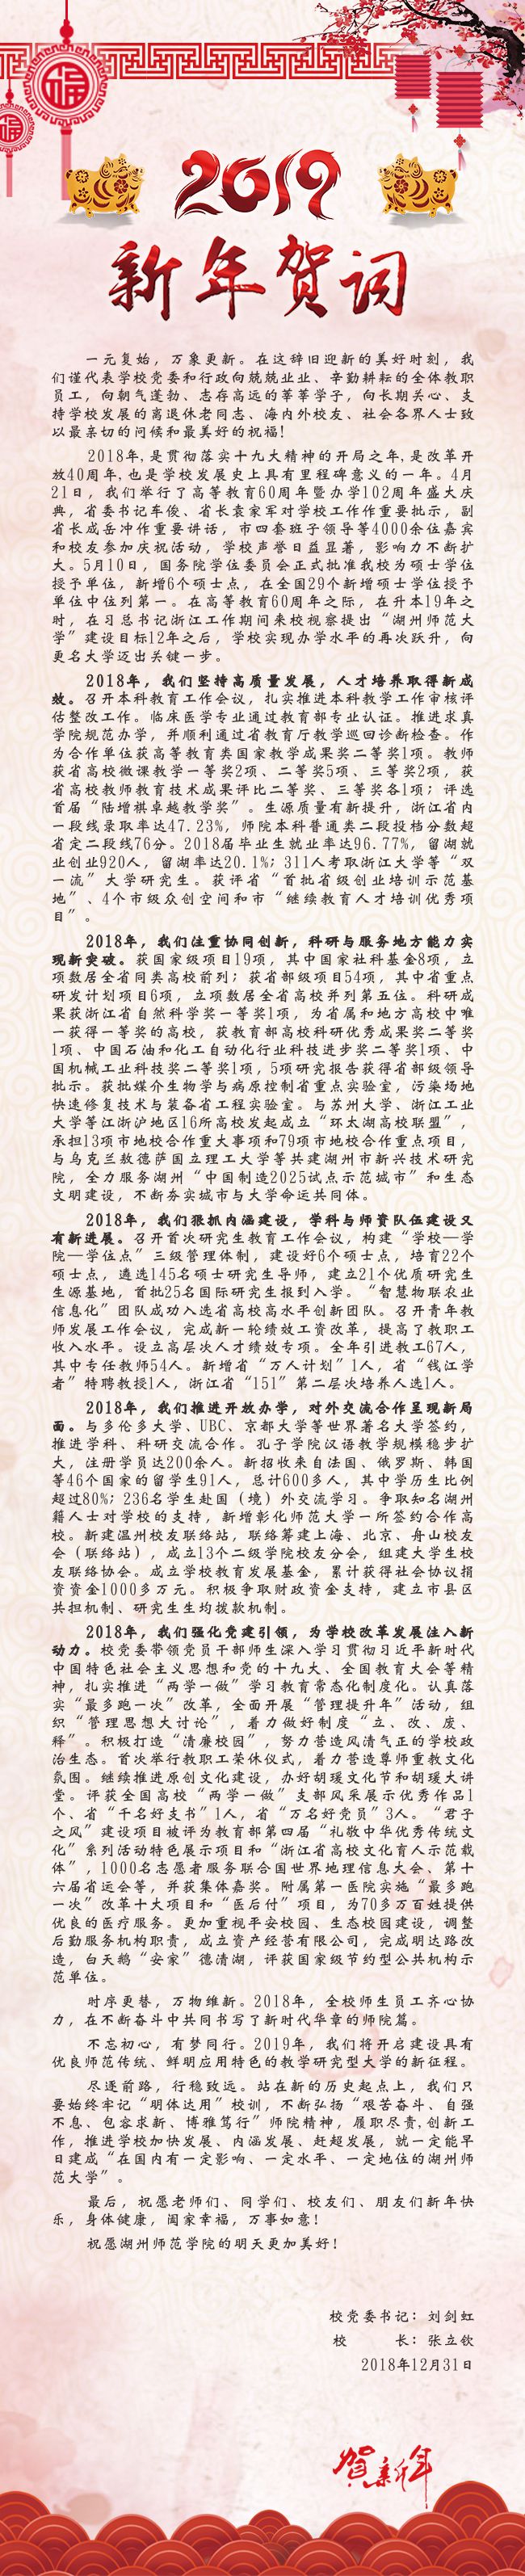 福
福
2019
新年贺词
一元复始，万象更新。在这辞旧迎新的美好时刻，我
们谨代表学校党委和行政向兢兢业业、辛勤耕耘的全体教职
员工，向朝气蓬勃、志存高远的莘莘学子，向长期关心、支
持学校发展的离退休老同志、海内外校友、社会各界人士致
以最亲切的问候和最美好的祝福！
2018年,是贯彻落实十九大精神的开局之年,是改革开
放40周年,也是学校发展史上具有里程碑意义的一年。4月
21日，我们举行了高等教育60周年暨办学102周年盛大庆
典，省委书记车俊、省长袁家军对学校工作作重要批示，副
省长成岳冲作重要讲话，市四套班子领导等4000余位嘉宾
和校友参加庆祝活动，学校声誉日益显著，影响力不断扩
大。5月10日，国务院学位委员会正式批准我校为硕士学位
授予单位，新增6个硕士点，在全国29个新增硕士学位授予
单位中位列第一。在高等教育60周年之际，在升本19年之
时，在习总书记浙江工作期间来校视察提出“湖州师范大
学”建设目标12年之后，学校实现办学水平的再次跃升，向
更名大学迈出关键一步。
2018年，我们坚持高质量发展，人才培养取得新成
效。召开本科教育工作会议，扎实推进本科教学工作审核评
估整改工作。临床医学专业通过教育部专业认证。推进求真
学院规范办学，并顺利通过省教育厅教学巡回诊断检查。作
为合作单位获高等教育类国家教学成果奖二等奖1项。教师
获省高校微课教学一等奖2项、二等奖5项、三等奖2项，获
省高校教师教育技术成果评比二等奖、三等奖各1项；评选
首届“陆增祺卓越教学奖”。生源质量有新提升，浙江省内
一段线录取率达47.23%，师院本科普通类二段投档分数超
省定二段线76分。2018届毕业生就业率达96.77%，留湖就
业创业920人，留湖率达20.1%；311人考取浙江大学等“双
一流”大学研究生。获评省“首批省级创业培训示范基
地”、4个市级众创空间和市“继续教育人才培训优秀项
目”。
2018年，我们注重协同创新，科研与服务地方能力实
现新突破。获国家级项目19项，其中国家社科基金8项，立
项数居全省同类高校前列；获省部级项目54项，其中省重点
研发计划项目6项，立项数居全省高校并列第五位。科研成
果获浙江省自然科学奖一等奖1项，为省属和地方高校中唯
一获得一等奖的高校，获教育部高校科研优秀成果奖二等奖
1项、中国石油和化工自动化行业科技进步奖二等奖1项、中
国机械工业科技奖二等奖1项，5项研究报告获得省部级领导
批示。获批媒介生物学与病原控制省重点实验室，污染场地
快速修复技术与装备省工程实验室。与苏州大学、浙江工业
大学等江浙沪地区16所高校发起成立“环太湖高校联盟”，
承担13项市地校合作重大事项和79项市地校合作重点项目，
与乌克兰敖德萨国立理工大学等共建湖州市新兴技术研究
院，全力服务湖州“中国制造2025试点示范城市”和生态
文明建设，不断夯实城市与大学命运共同体。
2018年，我们狠抓内涵建设，学科与师资队伍建设又
有新进展。召开首次研究生教育工作会议，构建“学校—学
院—学位点”三级管理体制，建设好6个硕士点，培育22个
硕士点，遴选145名硕士研究生导师，建立21个优质研究生
生源基地，首批25名国际研究生报到入学。“智慧物联农业
信息化”团队成功入选省高校高水平创新团队。召开青年教
师发展工作会议，完成新一轮绩效工资改革，提高了教职工
收入水平。设立高层次人才绩效专项。全年引进教工67人，
其中专任教师54人。新增省“万人计划”1人，省“钱江学
者”特聘教授1人，浙江省“151”第二层次培养人选1人。
2018年，我们推进开放办学，对外交流合作呈现新局
面。与多伦多大学、UBC、京都大学等世界著名大学签约，
推进学科、科研交流合作。孔子学院汉语教学规模稳步扩
大，注册学员达200余人。新招收来自法国、俄罗斯、韩国
等46个国家的留学生91人，总计600多人，其中学历生比例
超过80%；236名学生赴国（境）外交流学习。争取知名湖州
籍人士对学校的支持，新增彰化师范大学一所签约合作高
校。新建温州校友联络站，联络筹建上海、北京、舟山校友
会（联络站），成立13个二级学院校友分会，组建大学生校
友联络协会。成立学校教育发展基金，累计获得社会协议捐
资资金1000多万元。积极争取财政资金支持，建立市县区
共担机制、研究生生均拨款机制。
2018年，我们强化党建引领，为学校改革发展注入新
动力。校党委带领党员干部师生深入学习贯彻习近平新时代
中国特色社会主义思想和党的十九大、全国教育大会等精
神，扎实推进“两学一做”学习教育常态化制度化。认真落
实“最多跑一次”改革，全面开展“管理提升年”活动，组
织“管理思想大讨论”，着力做好制度“立、改、废、
释”。积极打造“清廉校园”，努力营造风清气正的学校政
治生态。首次举行教职工荣休仪式，着力营造尊师重教文化
氛围。继续推进原创文化建设，办好胡瑗文化节和胡瑗大讲
堂。评获全国高校“两学一做”支部风采展示优秀作品1
个、省“千名好支书”1人，省“万名好党员”3人。“君子
之风”建设项目被评为教育部第四届“礼敬中华优秀传统文
化”系列活动特色展示项目和“浙江省高校文化育人示范载
体”，1000名志愿者服务联合国世界地理信息大会、第十
六届省运会等，并获集体嘉奖。附属第一医院实施“最多跑
一次”改革十大项目和“医后付”项目，为70多万百姓提供
优良的医疗服务。更加重视平安校园、生态校园建设，调整
后勤服务机构职责，成立资产经营有限公司，完成明达路改
造，白天鹅“安家”德清湖，评获国家级节约型公共机构示
范单位。
时序更替，万物维新。2018年，全校师生员工齐心协
力，在不断奋斗中共同书写了新时代华章的师院篇。
不忘初心，有梦同行。2019年，我们将开启建设具有
优良师范传统、鲜明应用特色的教学研究型大学的新征程。
尽逐前路，行稳致远。站在新的历史起点上，我们只
要始终牢记“明体达用”校训，不断弘扬“艰苦奋斗、自强
不息、包容求新、博雅笃行”师院精神，履职尽责,创新工
作，推进学校加快发展、内涵发展、赶超发展，就一定能早
日建成“在国内有一定影响、一定水平、一定地位的湖州师
范大学”。
最后，祝愿老师们、同学们、校友们、朋友们新年快
乐，身体健康，阖家幸福，万事如意！
祝愿湖州师范学院的明天更加美好！
校党委书记：刘剑虹
校　　长：张立钦
2018年12月31日
贺新年